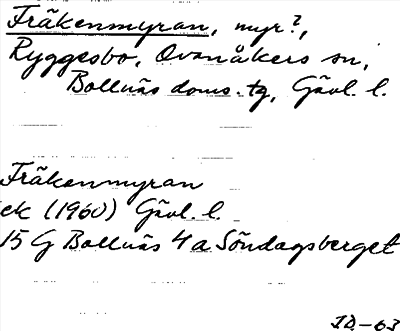 Fräkenmyran, myr?,
Ryggesbo, Ovanåkers sn,
Bollnäs doms. tg, Gävl. l.
Fräkenmyran
ek (1960) Gävl. l.
15 G Bollnäs 4 a Söndagsberget
ID-63